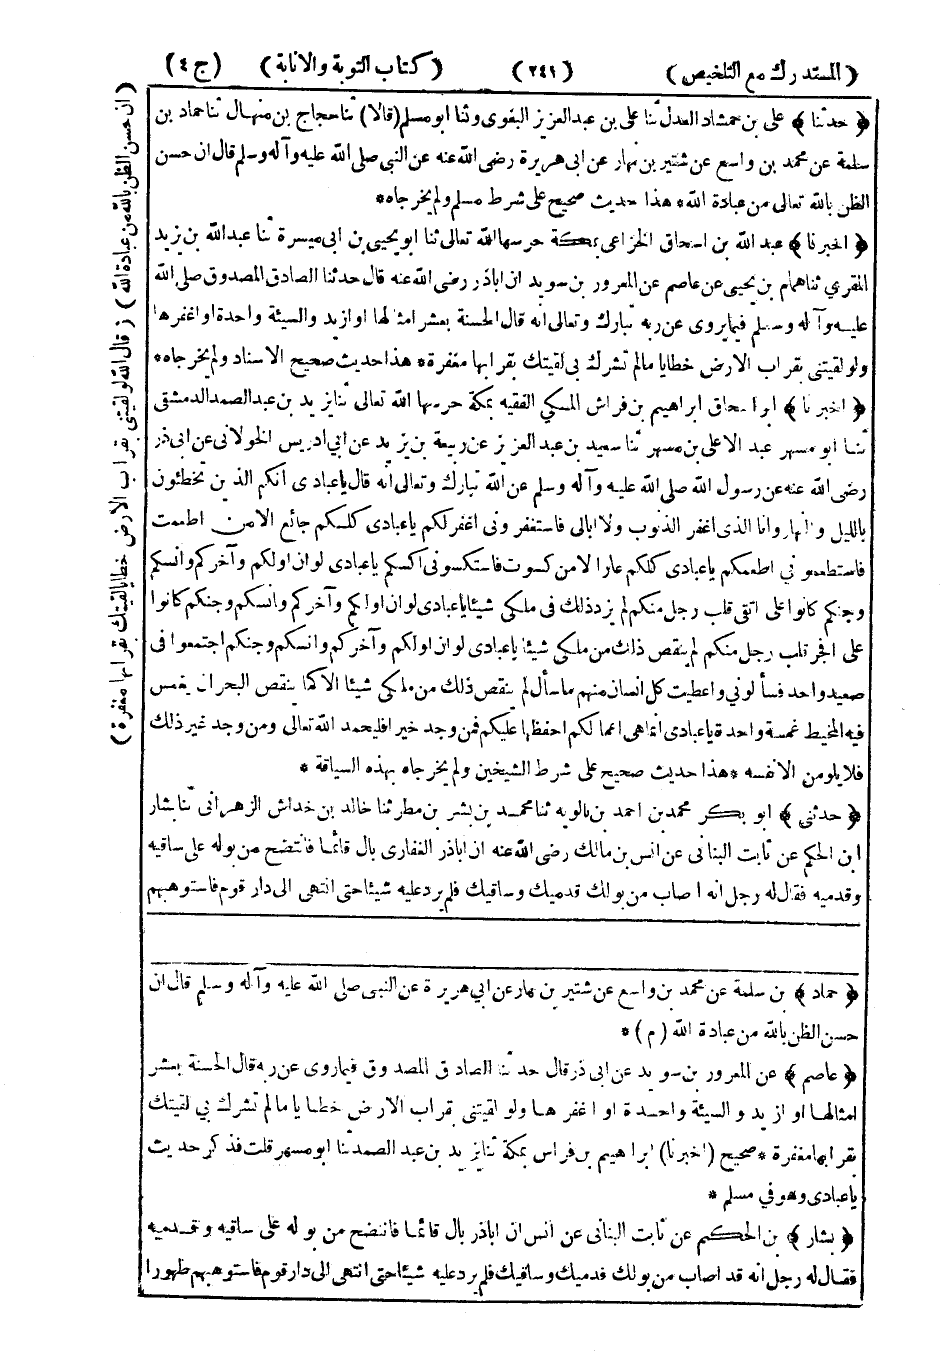 (المستدرك مع التلخيص) (٢٤١) (كتاب التوبة والانابة) (ج ٤)
﴿ حدثنا ﴾ على بن حمشاد العدل ثنا على بن عبد العزيز البغوى وثنا ابو مسلم (قالا) ثنا حجاج بن منهال ثنا حماد بن
سلمة عن محمد بن واسع عن شتير بن نهار عن ابى هريرة رضى الله عنه عن النبى صلى الله عليه وآله وسلم قال ان حسن
الظن بالله تعالى من عبادة الله * هذا حديث صحيح على شرط مسلم ولم يخرجاه *
﴿ اخبرنا ﴾ عبد الله بن اسحاق الخزاعى بمكة حرسها الله تعالى ثنا ابو يحيى بن ابى ميسرة ثنا عبد الله بن زيد
المقري ثنا همام بن يحيى عن عاصم عن المعرور بن سويد ان اباذر رضى الله عنه قال حدثنا الصادق المصدوق صلى الله
عليه وآله وسلم فيما يروى عن ربه تبارك وتعالى انه قال الحسنة بعشر امثالها او ازيد والسيئة واحدة او اغفرها
ولو لقيتنى بقراب الارض خطايا مالم تشرك بى لقيتك بقرابها مغفرة * هذا حديث صحيح الاسناد ولم يخرجاه *
﴿ اخبرنا ﴾ ابو اسحاق ابراهيم بن فراش المكي الفقيه بمكة حرسها الله تعالى ثنا يزيد بن عبد الصمد الدمشقى
ثنا ابو مسهر عبد الاعلى بن مسهر ثنا سعيد بن عبد العزيز عن ربيعة بن يزيد عن ابي ادريس الخولانى عن ابى ذر
رضى الله عنه عن رسول الله صلى الله عليه وآله وسلم عن الله تبارك وتعالى انه قال ياعبادى انكم الذين تخطئون
بالليل والنهار وانا الذى اغفر الذنوب ولا ابالى فاستغفرونى اغفر لكم ياعبادى كلكم جائع الا من اطعمت
فاستطعمونى اطعمكم ياعبادى كلكم عار الا من كسوت فاستكسونى اكسكم ياعبادى لو ان اولكم وآخركم وانسكم
وجنكم كانوا على اتقى قلب رجل منكم لم يزد ذلك فى ملكي شيئا ياعبادى لو ان اولكم وآخركم وانسكم وجنكم كانوا
على افجر قلب رجل منكم لم ينقص ذلك من ملكي شيئا ياعبادى لو ان اولكم وآخركم وانسكم وجنكم اجتمعوا فى
صعيد واحد فسألونى واعطيت كل انسان منهم ما سأل لم ينقص ذلك من ملكي شيئا الا كما ينقص البحر ان يغمس
فيه المخيط غمسة واحدة ياعبادى انما هى اعمالكم احفظها عليكم فمن وجد خيرا فليحمد الله تعالى ومن وجد غير ذلك
فلا يلومن الا نفسه * هذا حديث صحيح على شرط الشيخين ولم يخرجاه بهذه السياقة *
﴿ حدثنى ﴾ ابو بكر محمد بن احمد بن بالويه ثنا محمد بن بشر بن مطر ثنا خالد بن خداش الزهرانى ثنا بشار
ابن الحكم عن ثابت البنانى عن انس بن مالك رضى الله عنه ان اباذر الغفارى بال قائما فانتضح من بوله على ساقيه
وقدميه فقال له رجل انه اصاب من بولك قدميك وساقيك فلم يرد عليه شيئا حتى انتهى الى دار قوم فاستوهبهم
﴿ حماد ﴾ بن سلمة عن محمد بن واسع عن شتير بن نهار عن ابي هريرة عن النبى صلى الله عليه وآله وسلم قال ان
حسن الظن بالله من عبادة الله (م) *
﴿ عاصم ﴾ عن المعرور بن سويد عن ابى ذر قال حدثنا الصادق المصدوق فيما روى عن ربه قال الحسنة بعشر
امثالها او ازيد والسيئة واحدة او اغفرها ولو لقيتنى بقراب الارض خطايا مالم تشرك بي لقيتك
بقرابها مغفرة * صحيح (اخبرنا) ابراهيم بن فراس بمكة ثنا يزيد بن عبد الصمد ثنا ابو مسهر قلت فذكر حديث
ياعبادى وهو في مسلم *
﴿ بشار ﴾ بن الحكم عن ثابت البنانى عن انس ان اباذر بال قائما فانتضح من بوله على ساقيه وقدميه
فقال له رجل انه قد اصاب من بولك قدميك وساقيك فلم يرد عليه شيئا حتى انتهى الى دار قوم فاستوهبهم طهورا
(ان حسن الظن بالله من عبادة الله) (قال الله لو لقيتنى بقراب الارض خطايا لقيتك بقرابها مغفرة)